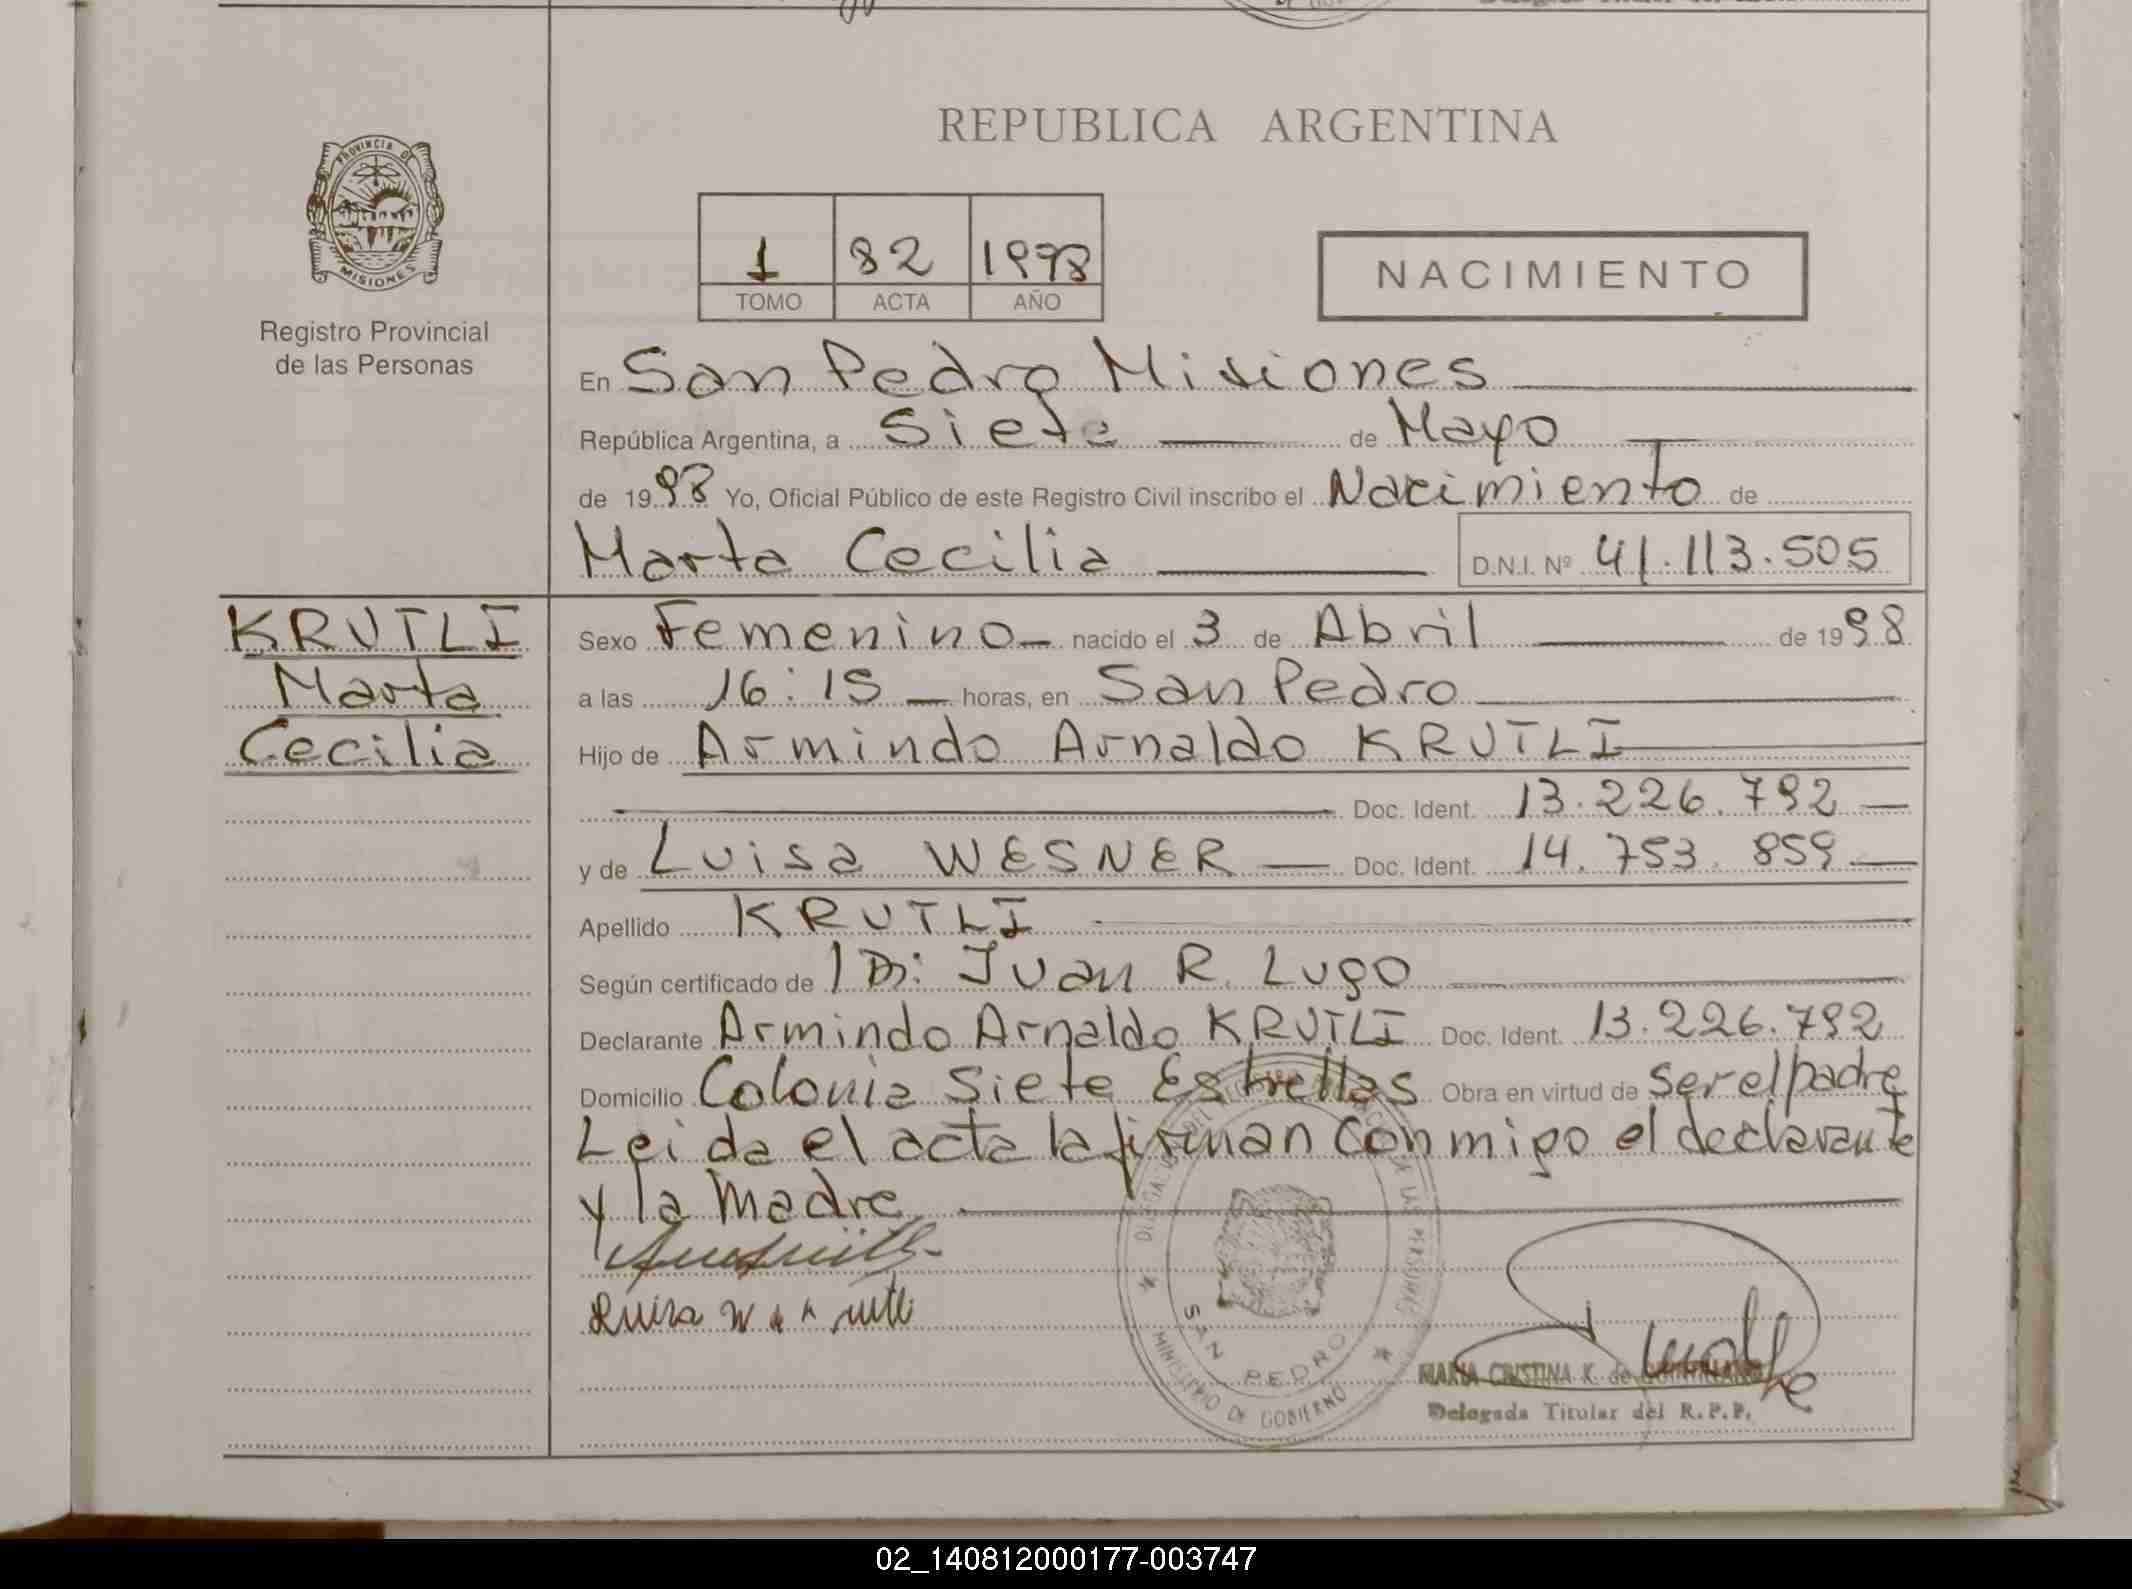 REPUBLICA ARGENTINA
PROVINCIA DE
MISIONES
Registro Provincial
de las Personas
1 82 1998
TOMO ACTA AÑO
NACIMIENTO
En San Pedro Misiones
República Argentina, a Siete de Mayo
de 1998 Yo, Oficial Público de este Registro Civil inscribo el Nacimiento de
Marta Cecilia D.N.I. Nº 41.113.505
KRUTLI
Marta
Cecilia
Sexo Femenino nacido el 3 de Abril de 1998
a las 16:15 horas, en San Pedro
Hijo de Armindo Arnaldo KRUTLI
Doc. Ident. 13.226.792
y de Luisa WESNER Doc. Ident. 14.753.859
Apellido KRUTLI
Según certificado de Dr: Juan R. Lugo
Declarante Armindo Arnaldo KRUTLI Doc. Ident. 13.226.792
Domicilio Colonia Siete Estrellas Obra en virtud de ser el padre
Leida el acta la firman conmigo el declarante
y la madre
Luisa W de Krutli
SAN PEDRO
MINISTERIO DE GOBIERNO
MARIA CRISTINA K. de
Delegada Titular del R.P.P.
02_140812000177-003747